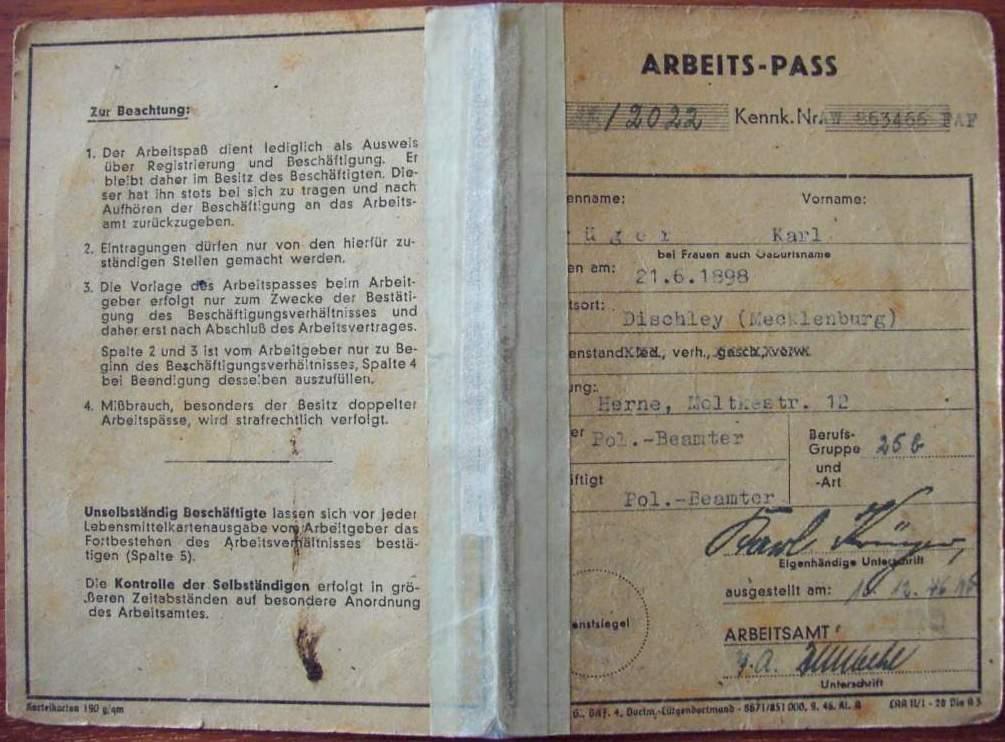 Zur Beachtung:
1. Der Arbeitspaß dient lediglich als Ausweis
über Registrierung und Beschäftigung. Er
bleibt daher im Besitz des Beschäftigten. Die-
ser hat ihn stets bei sich zu tragen und nach
Aufhören der Beschäftigung an das Arbeits-
amt zurückzugeben.
2. Eintragungen dürfen nur von den hierfür zu-
ständigen Stellen gemacht werden.
3. Die Vorlage des Arbeitspasses beim Arbeit-
geber erfolgt nur zum Zwecke der Bestäti-
gung des Beschäftigungsverhältnisses und
daher erst nach Abschluß des Arbeitsvertrages.
Spalte 2 und 3 ist vom Arbeitgeber nur zu Be-
ginn des Beschäftigungsverhältnisses, Spalte 4
bei Beendigung desselben auszufüllen.
4. Mißbrauch, besonders der Besitz doppelter
Arbeitspässe, wird strafrechtlich verfolgt.
Unselbständig Beschäftigte lassen sich vor jeder
Lebensmittelkartenausgabe vom Arbeitgeber das
Fortbestehen des Arbeitsverhältnisses bestä-
tigen (Spalte 5).
Die Kontrolle der Selbständigen erfolgt in grö-
ßeren Zeitabständen auf besondere Anordnung
des Arbeitsamtes.
Karteikarten 190 g/qm
ARBEITS-PASS
/2022 Kennk. Nr. AW 863466 FAF
enname: Vorname:
rüger Karl
bei Frauen auch Geburtsname
en am: 21.6.1898
tsort: Dischley (Mecklenburg)
enstand led., verh., gesch., verw.
ung: Herne, Moltkestr. 12
er Pol.-Beamter
Berufs-
Gruppe 25 b
und
-Art
iftigt
Pol.-Beamter
Karl Krüger
Eigenhändige Unterschrift
ausgestellt am: 12. 46
enstsiegel
ARBEITSAMT
I.A.
Unterschrift
G., BAF. 4, Dortm.-Lütgendortmund - 8671/851 000. 9. 46. Kl. A